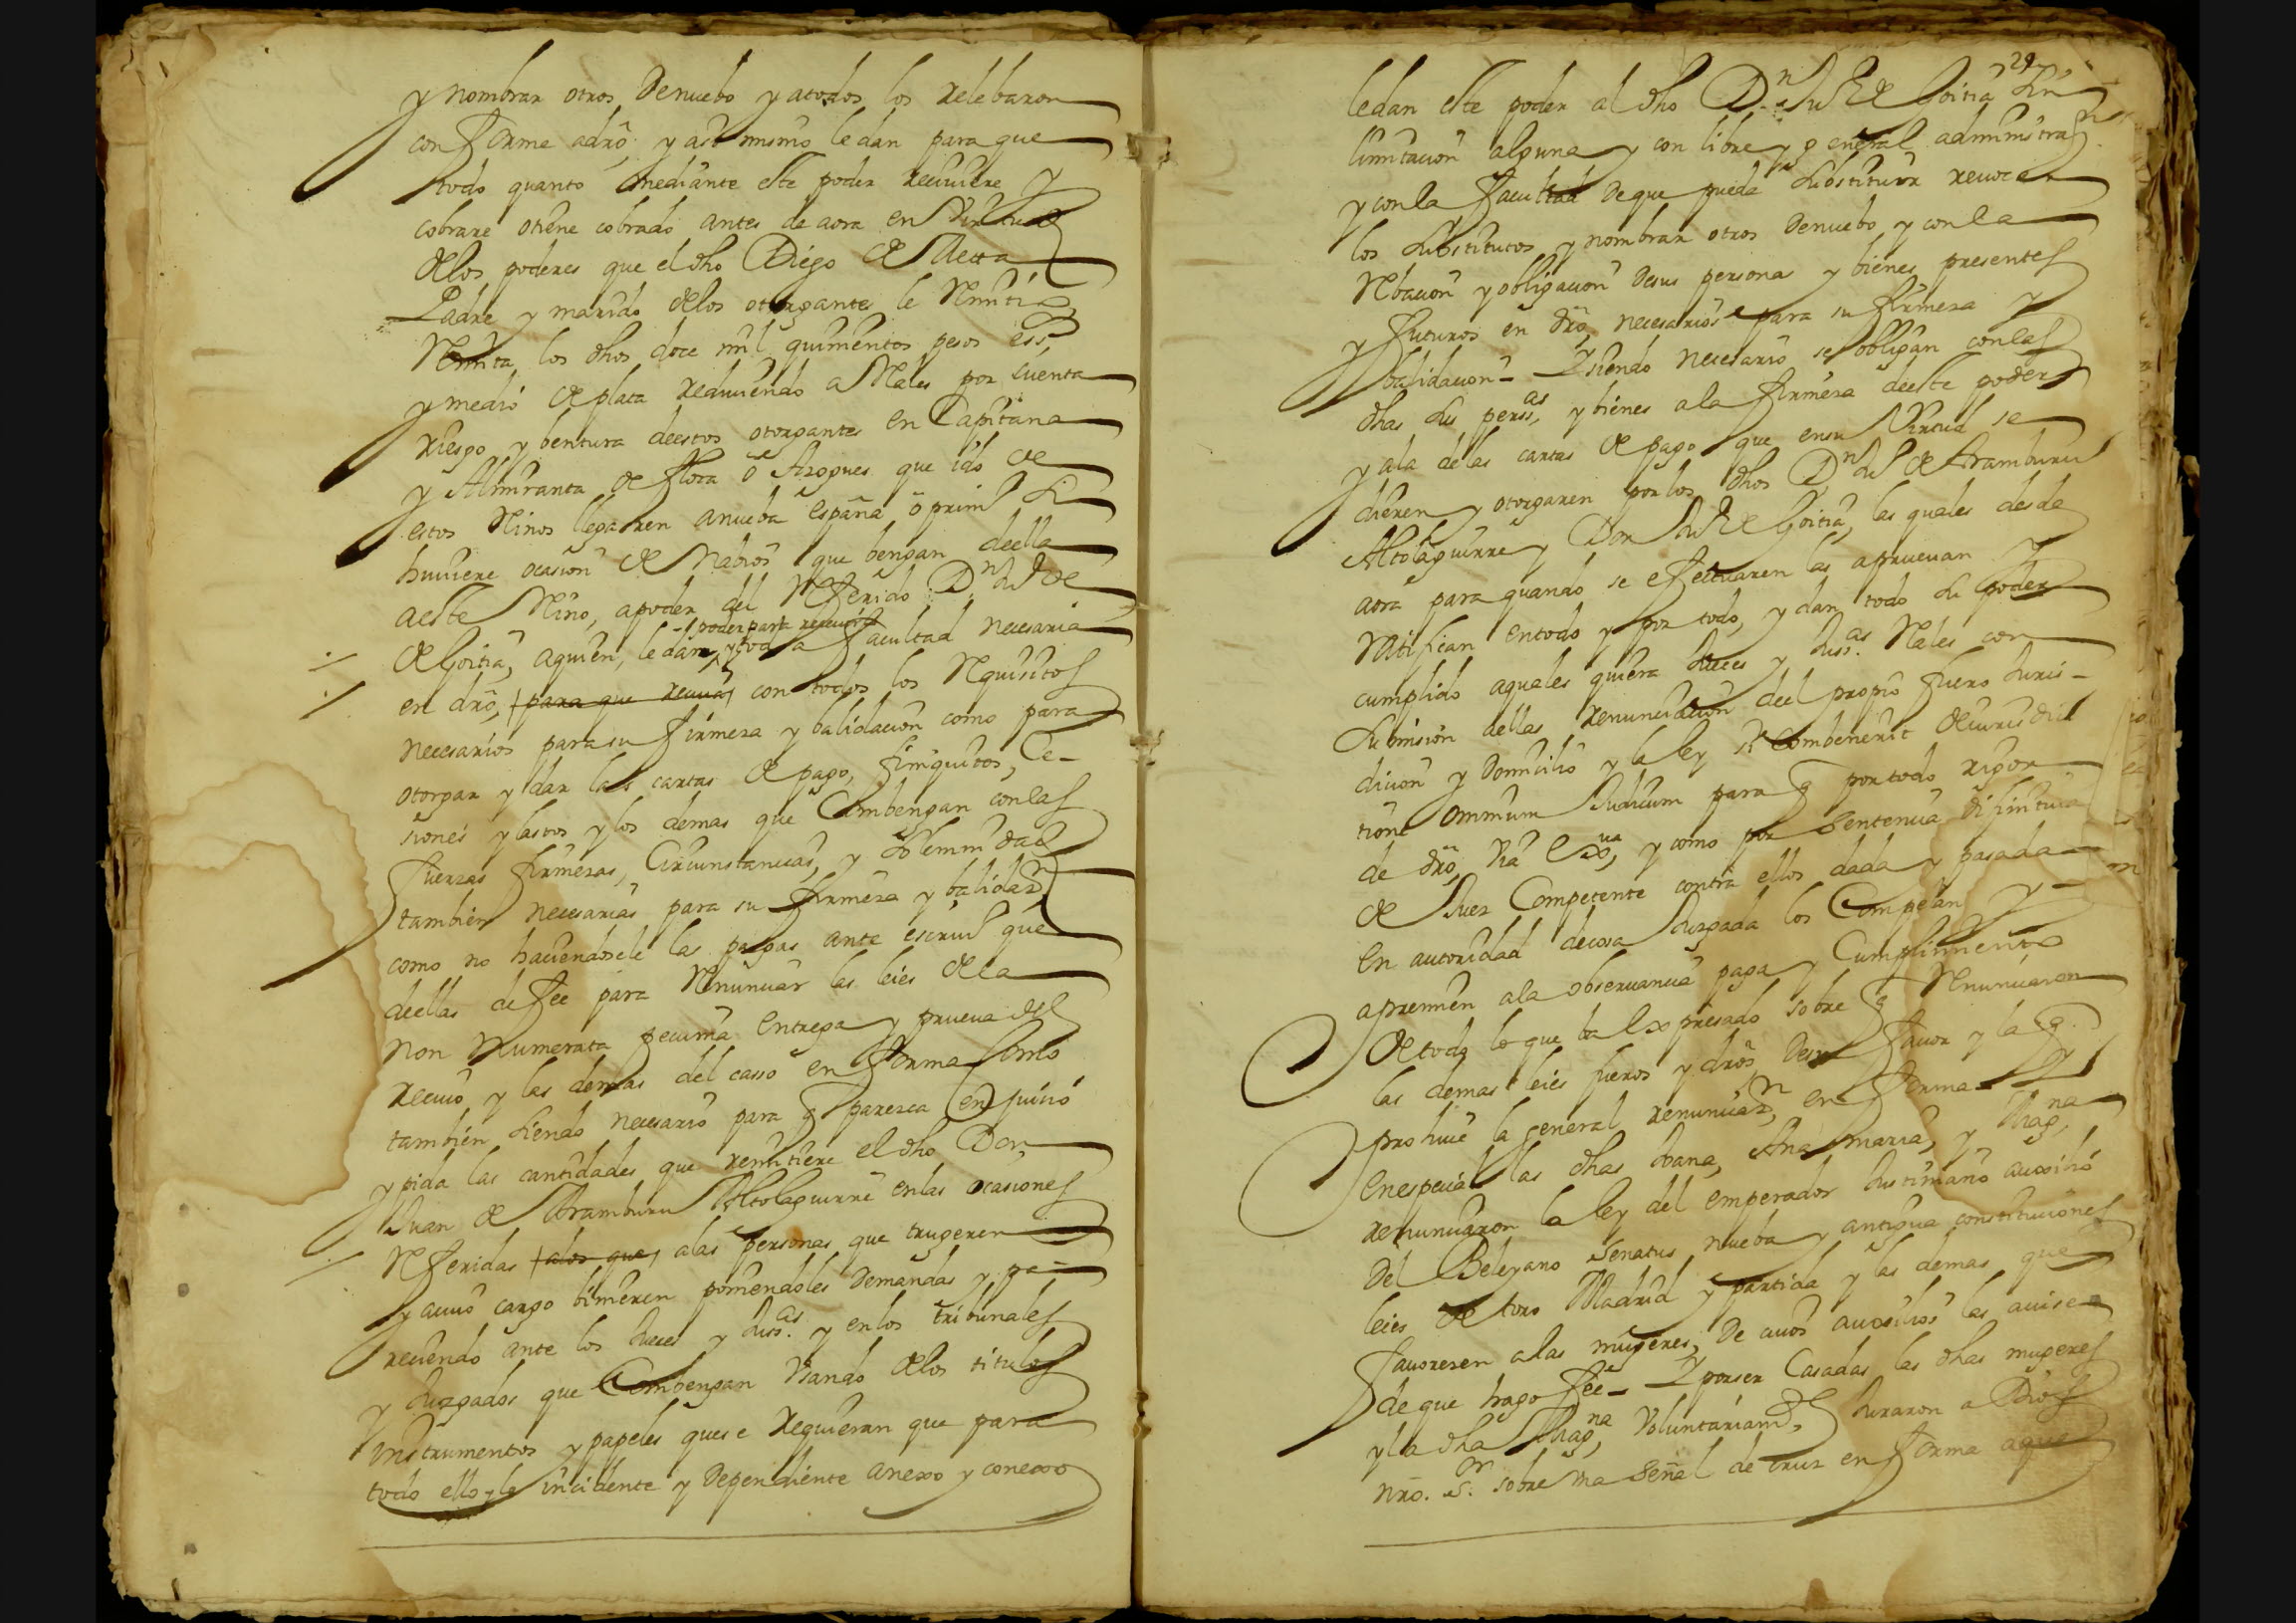 y nombrar otros Denuebo y atodos los relebaron
conforme adrõ, y assi mismo le dan para que
todo quanto mediante este poder reciuiere y
cobrare otiene cobrado antes de aora en Virtud
delos poderes que el dho Diego de
Padre y marido delos otorgantes le Remitió
Remita los dhos doce mil quinientos pesos ess,
y medio de plata reduciendo a Reales por cuenta
riesgo y bentura deestos otorgantes en Capitana
y Almiranta de flota ó Azogues que
estos Reinos llegaren anueba españa ó
huuiere ocasion de Nabios que bengan deella
aeste Reino, apoder del Referido Dn. Ju de
de Goitia, aquien, le dan, y toda facultad necesaria
poder para receuir
en drõ, para que reciua, con todos los Requisitos
necesarios para su firmeza y balidacion como para
otorgar y dar las cartas de pago, finiquitos, Ce-
siones y lastos y los demas que Combengan conlas
fuerzas firmezas, Circunstancias, y Solemnidad
tambien necesarias para su firmeza y balidazn,
como no haciendosele las pagas ante escriu que
deellas de fee para Renunciar las leies dela
non Numerata pecunia Entrega y prueua del
reciuo y las demas del casso en forma Como
tambien siendo necesario para q parezca en juicio
y pida las cantidades que remitiere el dho Don,
Juan de Aramburu Altolaguirre enlas ocasiones
Referidas alos que, alas personas que trugeren
y acuio cargo binieren poniendoles Demandas y pa-
reciendo ante los Jueces y Jussas. y enlos tribunales
y Juzgados que Combengan Usando delos titulos
instrumentos y papeles quese requieran que para
todo ello y lo incidente y Dependiente anexo y conexo
29
ledan este poder al dho Dn. Ju de Goitia Sin
limitacion alguna y con libre y general administraz
y conla facultad deque pueda Substituir reuocar
los Substitutos y nombrar otros Denuebo y conla
Rebacion y obligacion desus persona y bienes presentes
y futuros en drõ, necesarios para su firmeza y
balidacion - Y siendo necesario se obligan conlas
dhas sus perssas, y bienes ala firmeza deeste poder
y ala delas cartas de pago que ensu Virtud se
dieren y otorgaren por los dhos Dn Ju de Aramburu
Altolaguirre y Don Ju de Goitia, las quales desde
aora para quando se efectuaren las aprueuan y
ratifican entodo y por todo, y dan todo su poder
cumplido aquales quiera Jueces y Jussas. Reales con
Sumision dellas, renunciacion del propio fuero Juris-
dicion y Domicilio y la ley si combenerit deiurisdic
tione omnium Judicum para q por todo rigor
de drõ, Via exva, y como por Sentencia difinitiua
de Juez Competente contra ellos dada y pasada
en autoridad decosa Juzgada los Compelan y
apremien ala obseruancia paga y Cumplimiento
de todo lo que ba expresado sobre q Renunciaron
las demas leies fueros y drõs, Desu fauor y la q.
prohiue la general renunciazn, en forma - y
enespecial las dhas Juana, Ana maria, y Magna,
renunciaron la ley del emperador Justiniano auxilio
del Beleyano Senatus nueba y antigua constituciones
leies de toro Madrid y partida y las demas que
fauorecen alas mugeres, De cuios auxilios las auise
de que hago fee - Y porser Casadas las dhas mugeres
y la dha Magna, Voluntariamte, Juraron a Dios
nrõ. Sr. sobre una Señal de Cruz en forma aque